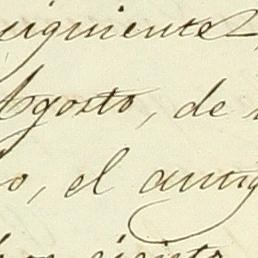 siguientes
Agosto, de
o, el antig